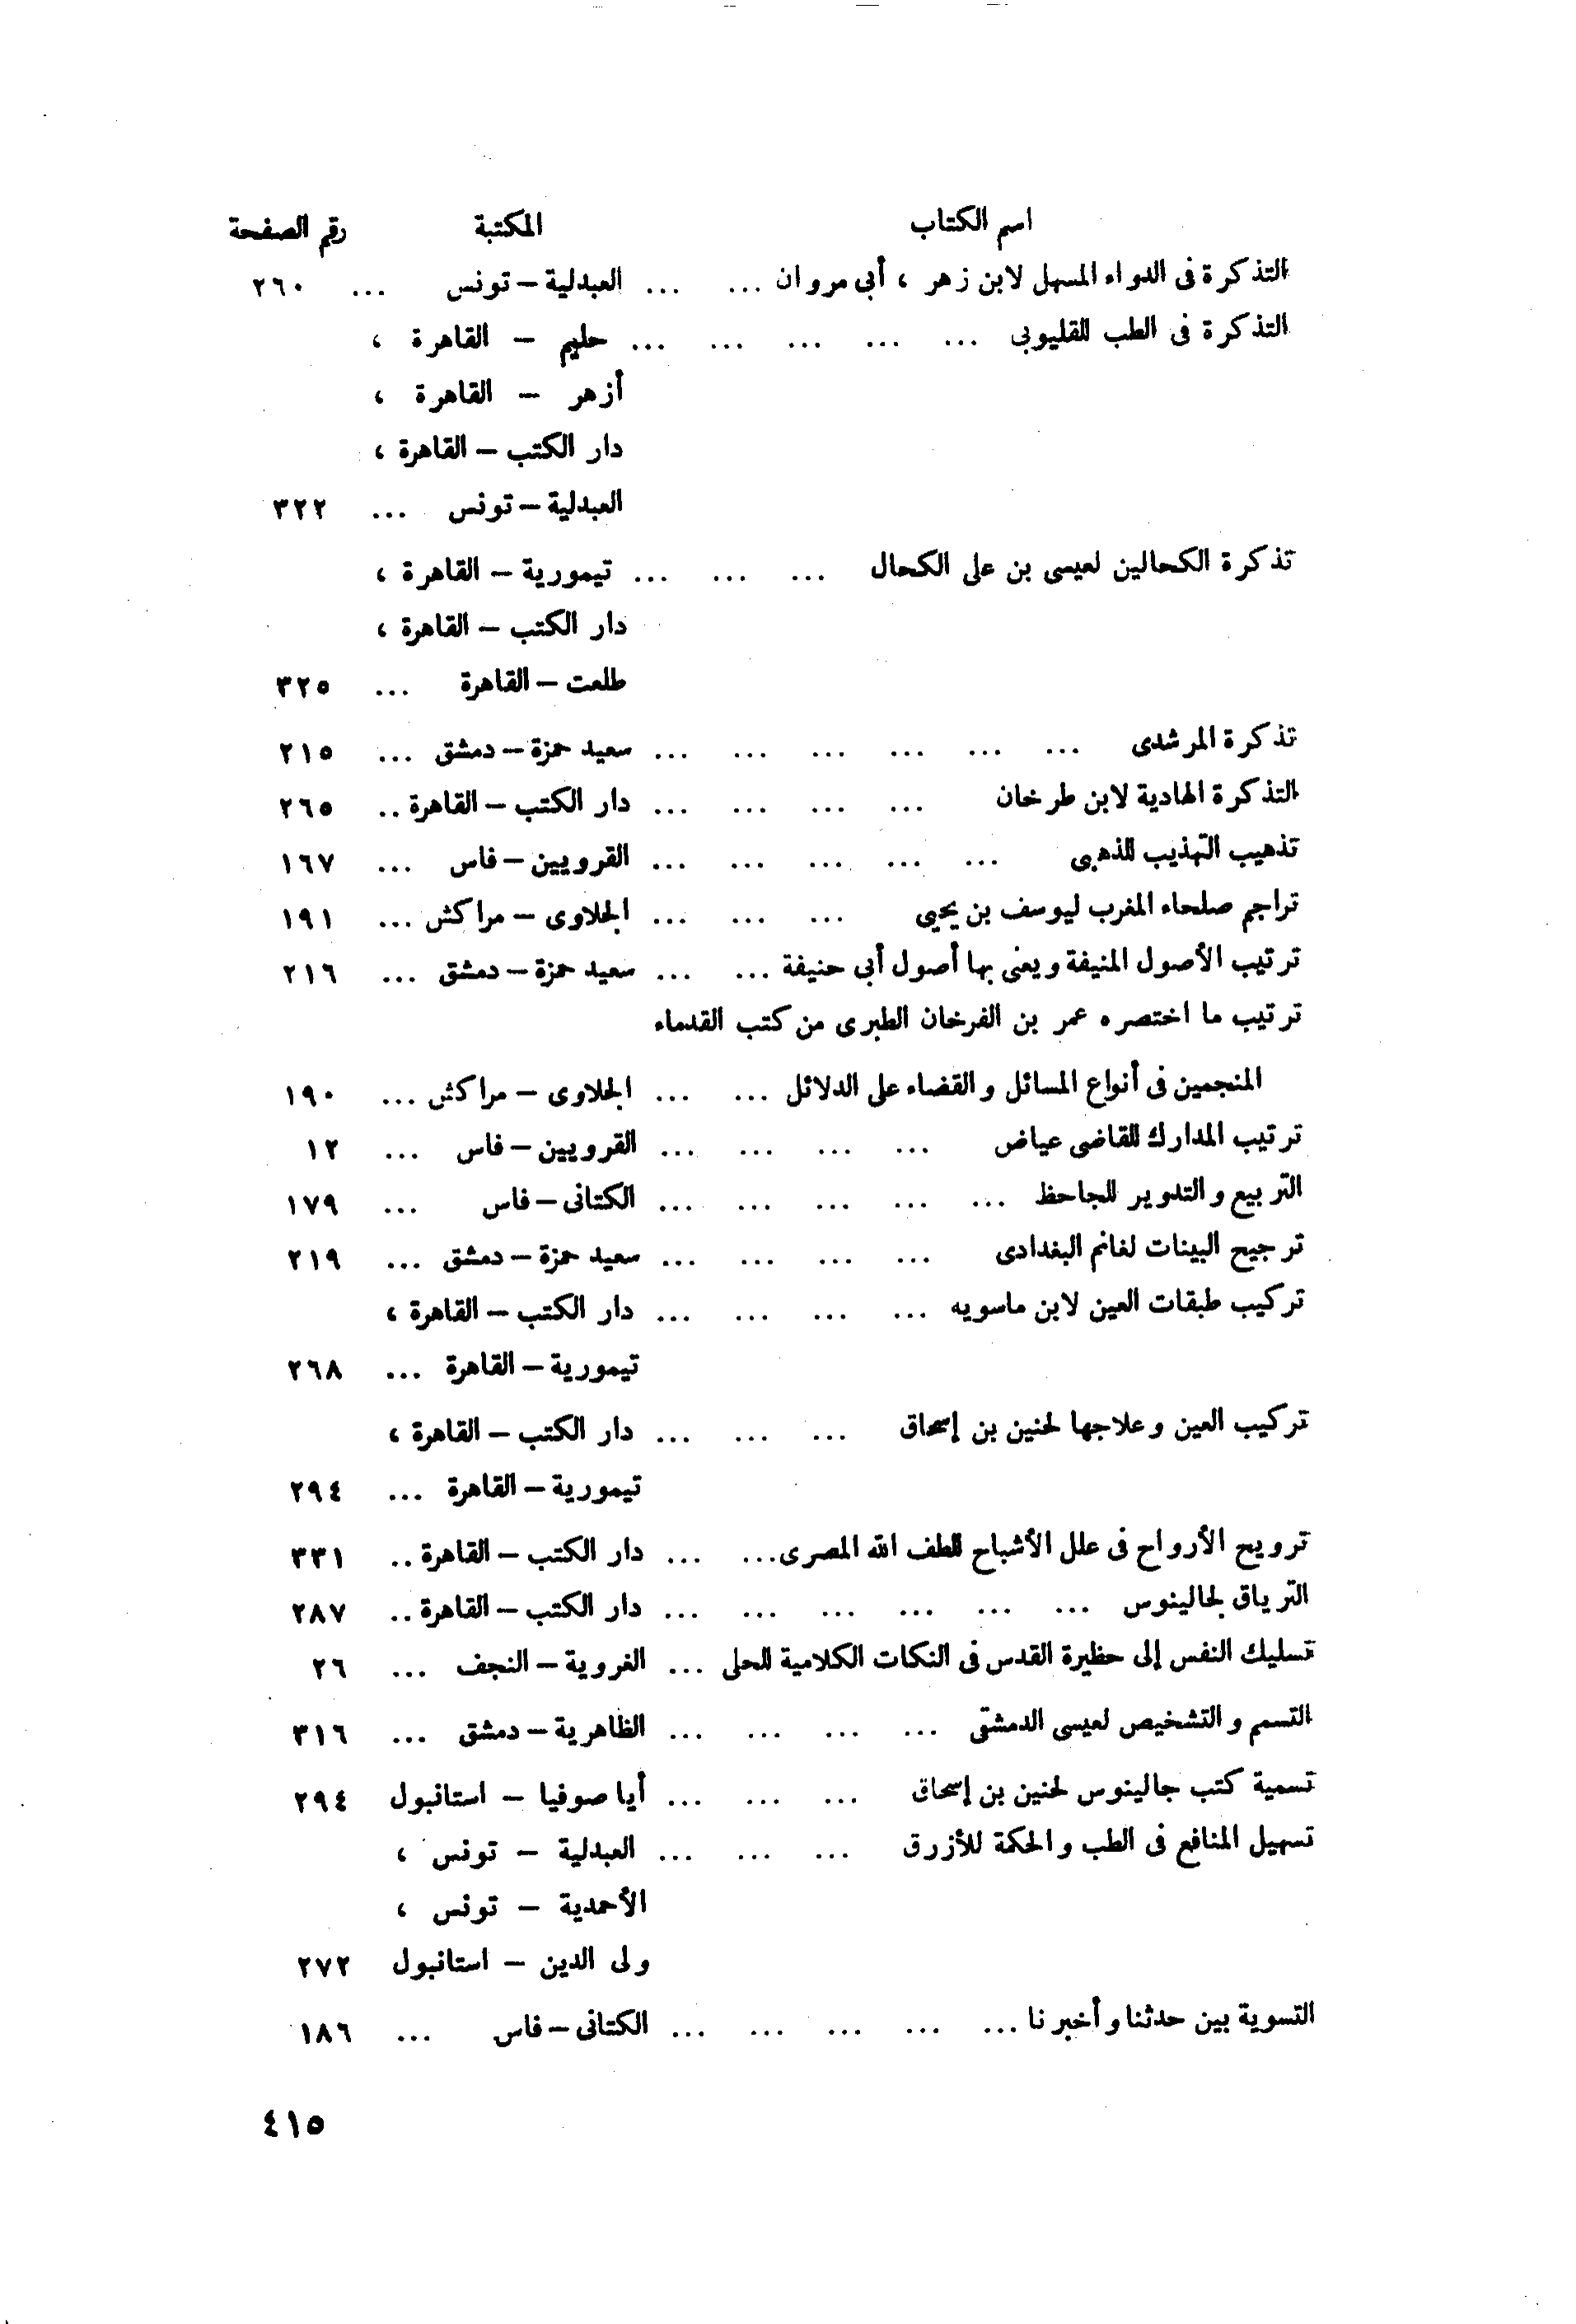 اسم الكتاب المكتبة رقم الصفحة
التذكرة فى الدواء المسهل لابن زهر ، أبى مروان ... ... العبدلية – تونس ... ٢٦٠
التذكرة فى الطب للقليوبى ... ... ... ... ... حليم – القاهرة ،
أزهر – القاهرة ،
دار الكتب – القاهرة ،
العبدلية – تونس ... ٣٢٢
تذكرة الكحالين لعيسى بن على الكحال ... ... ... تيمورية – القاهرة ،
دار الكتب – القاهرة ،
طلعت – القاهرة ... ٣٢٥
تذكرة المرشدى ... ... ... ... ... ... سعيد حمزة – دمشق ... ٢١٥
التذكرة الهادية لابن طرخان ... ... ... ... دار الكتب – القاهرة .. ٢٦٥
تذهيب التهذيب للذهبى ... ... ... ... ... القرويين – فاس ... ١٦٧
تراجم صلحاء المغرب ليوسف بن يحيى ... ... ... الجلاوى – مراكش ... ١٩١
ترتيب الأصول المنيفة ويعنى بها أصول أبى حنيفة ... ... سعيد حمزة – دمشق ... ٢١٦
ترتيب ما اختصره عمر بن الفرخان الطبرى من كتب القدماء
المنجمين فى أنواع المسائل والقضاء على الدلائل ... ... الجلاوى – مراكش ... ١٩٠
ترتيب المدارك للقاضى عياض ... ... ... ... القرويين – فاس ... ١٢
التربيع والتدوير للجاحظ ... ... ... ... ... الكتانى – فاس ... ١٧٩
ترجيح البينات لغانم البغدادى ... ... ... ... سعيد حمزة – دمشق ... ٢١٩
تركيب طبقات العين لابن ماسويه ... ... ... ... دار الكتب – القاهرة ،
تيمورية – القاهرة ... ٢٦٨
تركيب العين وعلاجها لحنين بن إسحاق ... ... ... دار الكتب – القاهرة ،
تيمورية – القاهرة ... ٢٩٤
ترويح الأرواح فى علل الأشباح للطف الله المصرى ... ... دار الكتب – القاهرة .. ٣٣١
الترياق لجالينوس ... ... ... ... ... ... دار الكتب – القاهرة .. ٢٨٧
تسليك النفس إلى حظيرة القدس فى النكات الكلامية للحلى ... الغروية – النجف ... ٢٦
التسمم والتشخيص لعيسى الدمشقى ... ... ... ... الظاهرية – دمشق ... ٣١٦
تسمية كتب جالينوس لحنين بن إسحاق ... ... ... أيا صوفيا – استانبول ٢٩٤
تسهيل المنافع فى الطب والحكمة للأزرق ... ... ... العبدلية – تونس ،
الأحمدية – تونس ،
ولى الدين – استانبول ٢٧٢
التسوية بين حدثنا وأخبرنا ... ... ... ... ... الكتانى – فاس ... ١٨٦
٤١٥